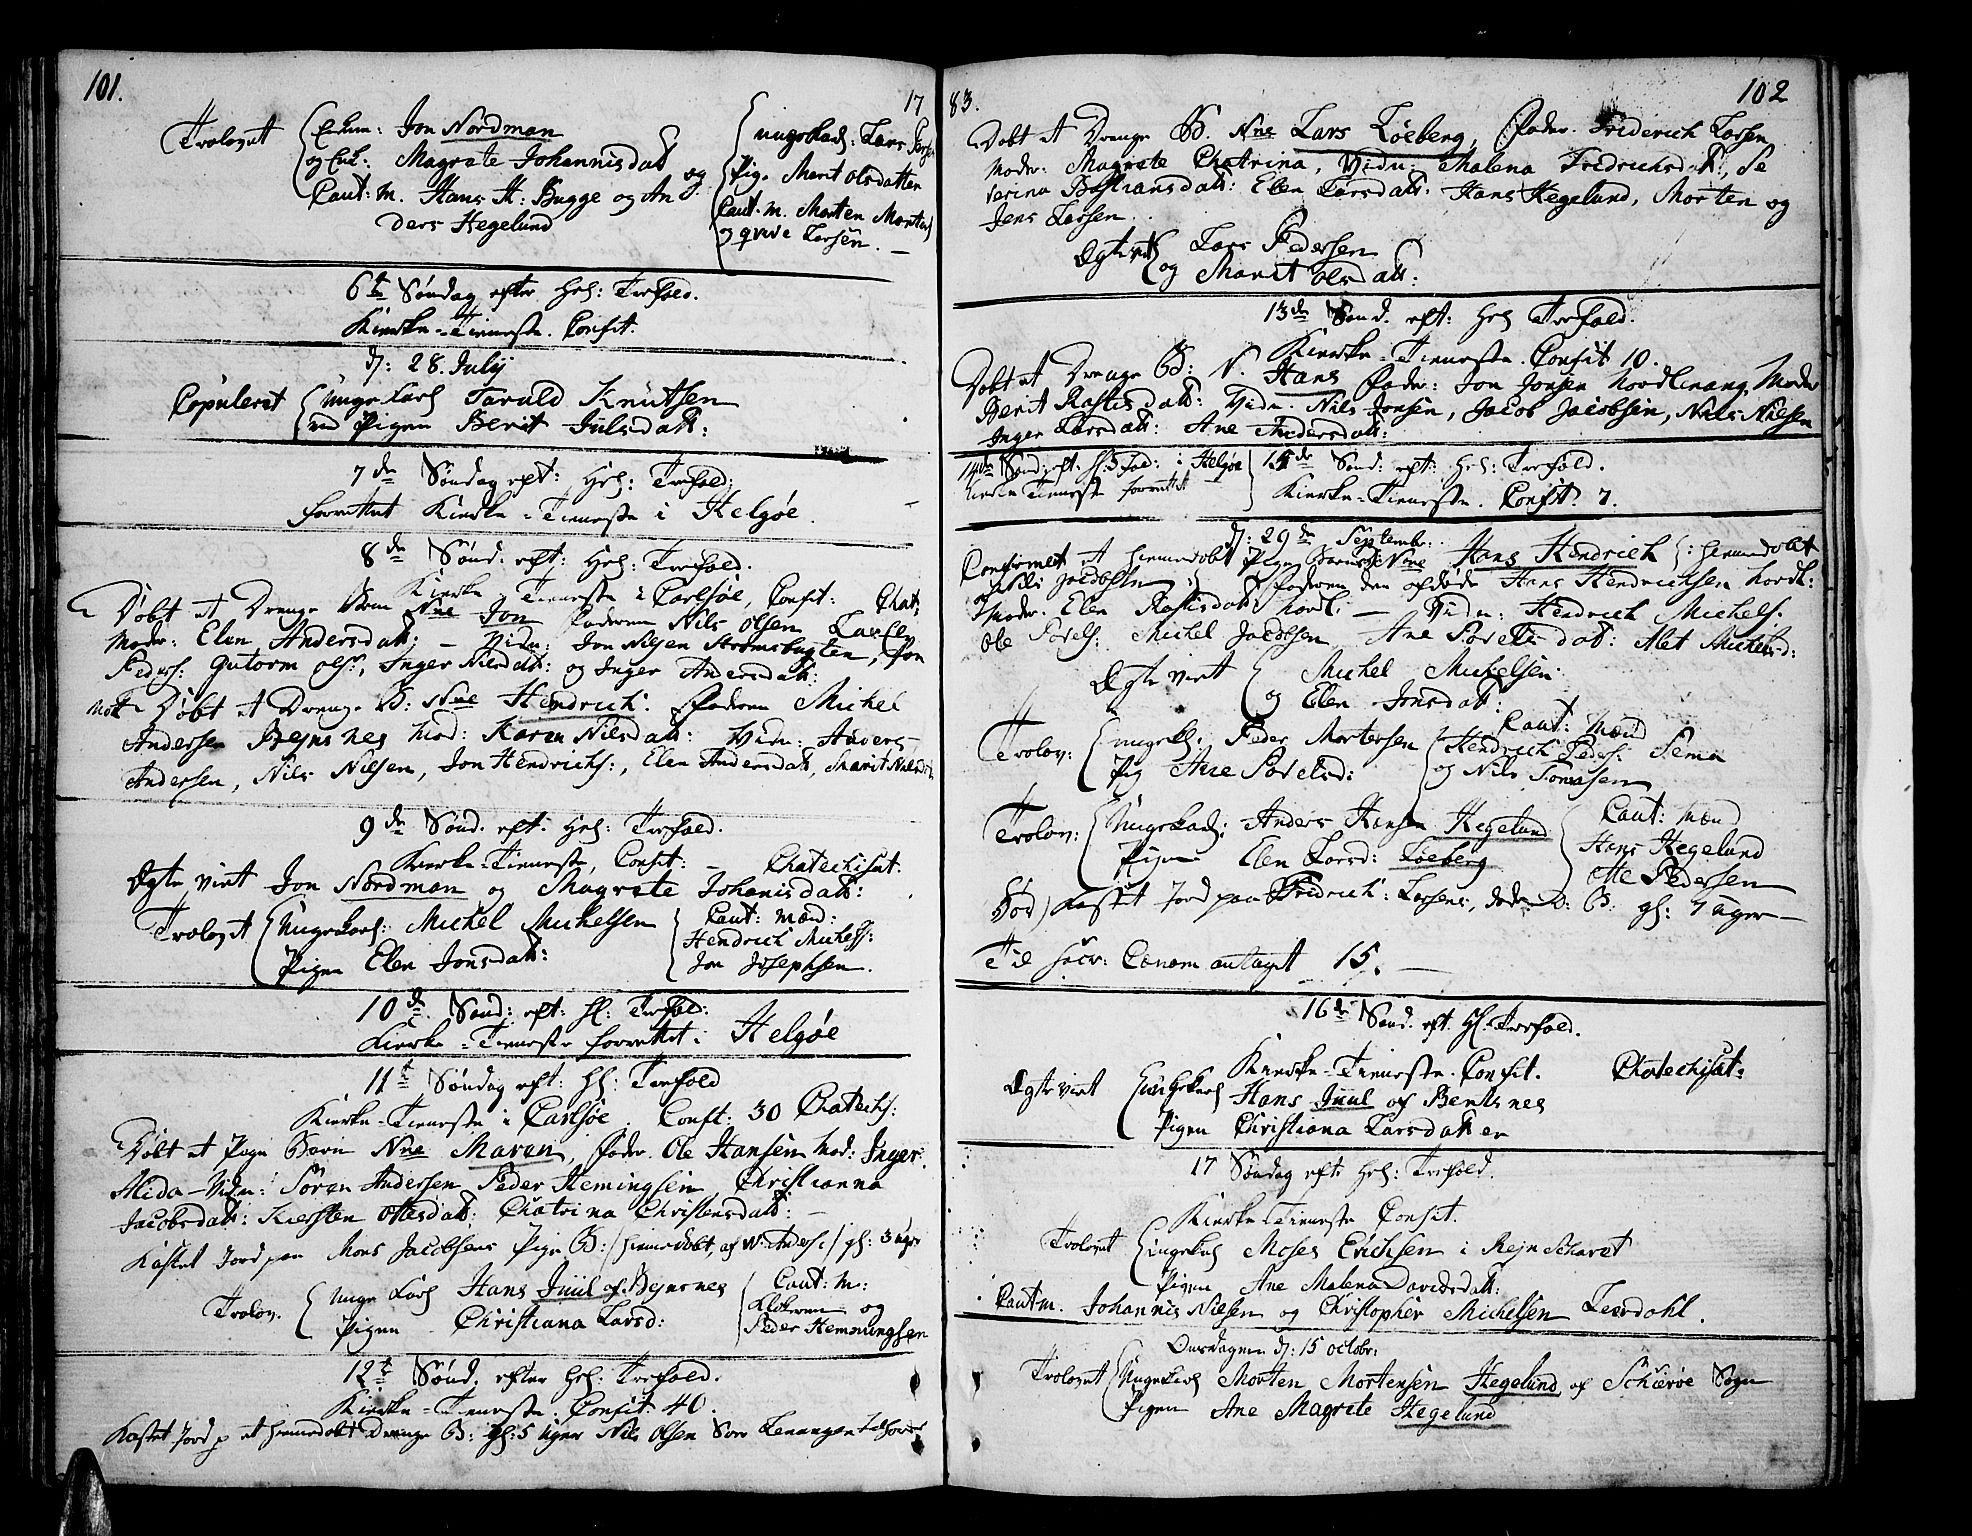 101. 17
Trolovet Enkem: Jon Nordman
og Enk: Magrete Johannisdatt og
Caut: m. Hans A: Bugge og An
ders Hegelund
ungekarl: Lars Peders
Pig. Marit Olsdatter
Caut. m. Morten Morten
og Larsen.
6te Søndag efter Hel: Trefold.
Kierke-Tieneste. Confit:
d: 28. July
Copuleret Unge Karl Taruld Knutsen
med Pigen Berit Julsdatt:
7de Søndag eft: Hel: Trefold:
forrettet Kierke-Tieneste i Helgøe.
8de Sønd: eft: Hel: Trefold.
Kierke-Tieneste i Carlsøe, Confit: Chat:
Døbt et Drenge Barn Nne Jon Faderen Nils Olsen
Moder: Elen Andersdatt: Vidn: Jon Nilsen Strømsbugten, Jon
Peders: Gutorm Ols:, Inger Nilsdatt: og Inger Andersdatt:
Døbt et Drenge B: Nne Hendrich. Faderen Michel
Andersen Bejnsnes Mod: Karen Nilsdatt: Vidn: Anders
Andersen, Nils Nilsen, Jon Hendrichs:, Elen Andersdatt, Marit Nilsd
9de Sønd. eft. Hel: Trefold.
Kierke-Tieneste, Confit: Chatechisat.
Ægte viet Jon Nordman og Magrete Johanisdatt:
Trolovet Ungekarl: Michel Michelsen
Pigen Elen Jonsdatt:
Caut: Mænd:
Hendrich Michels:
Jon Josephsen.
10de Sønd: eft: Hl: Trefold:
Kierke-Tieneste forrettet i Helgøe
11te Søndag eft: Hl: Trefold
Kierke-Tieneste i Carlsøe. Confit: 30 Chatechs:
Døbt et Pige Barn Nne Maren, Fader Ole Hansen Mod: Inger
Alida - Vidn: Søren Andersen Peder Hemingsen Christianna
Jacobsdatt: Kiersten Ottesdatt: Chatrina Christensdatt:
Kastet Jord paa Mons Jacobsens Pige B: (hiemedøbt, af N: Anders:) gl: 3 uger
Trolov: Unge Karl Hans Juul af Bejnsnes
Pigen Christiana Larsd:
Caut: M:
Klokeren og
Peder Hemmingsen
12te Sønd. efter Hel: Trefold.
Kierke-Tieneste. Confit: 40.
Kastet Jord p et hiemedøbt Drenge B: gl: 5 uger Nils Olsen Lenangen
83. 102
Døbt et Drenge B. Nne Lars Løeberg, Fader. Friderich Larsen
Moder: Magrete Chatrina, Vidn: Malena Fredrichsdatt:, Se
verina Bastiansdatt: Elen Larsdatt: Hans Hegelund, Morten og
Jens Larsen
Ægteviet Lars Pedersen
og Marit Olsdatt:
13de Sønd. eft: Hel Trefold.
Kierke-Tieneste. Confit 10.
Døbt et Drenge B: N. Hans Fader: Jon Jonsen Nordlenang, Moder
Berit Rastisdatt: Vidn. Nils Jonsen, Jacob Jacobsen, Nils Nilsen
Inger Larsdatt: Ane Andersdatt:
14de Sønd: eft. Hl. 3fold: i Helgøe
Kierke Tieneste forrettet
15de Sønd: eft: Hel: Trefold.
Kierke-Tieneste. Confit: 7.
d: 29de Septembr:
Confirmet et hiemedøbt Barn Nne Hans Hendrich (: hiemedøbt
af Nils Jacobsen :) Faderen den afdøde Hans Hendrichsen Nordl:
Moder: Elen Rastisdatt: Nordl: - Vidn: Hendrich Michels:
Ole Povels: Michel Jacobsen Ane Povelsdatt: Alet Michelsd:
Ægte viet Michel Michelsen
og Elen Jonsdatt:
Trolov: ungekl: Peder Mortensen
Pig Ane Povelsd:
Caut: Mænd
Hendrich Peders:
og Nils Tomasen
Trolov: Ungekarl: Anders Hansen Hegelund
Pigen Elen Larsd: Løeberg
Caut: Mænd
Hans Hegelund
Ole Pedersen
Død) Kastet Jord paa Fridrich Larsens, døde D: B: gl: 7 uger
Til antaget 15.
16de Sønd. eft. Hl: Trefold.
Kierke-Tieneste. Confit. Chatechisat:
Ægte viet Ungekarl Hans Juul af Bentsnes
Pigen Christiana Larsdatter
17 Søndag eft: Hel: Trefold.
Kierke-Tieneste Confit.
Trolovet Ungekarl Moses Erichsen i Rejn Scharet
Pigen Ane Malena Davidsdatt:
Caut m. Johannis Nilsen og Christopher Michelsen Leerdahl.
Onsdagen d: 15 Octobr:
Trolovet Ungekarl Morten Mortensen Hegelund af Schierøe Sogn
Pigen Ane Magrete Hegelund